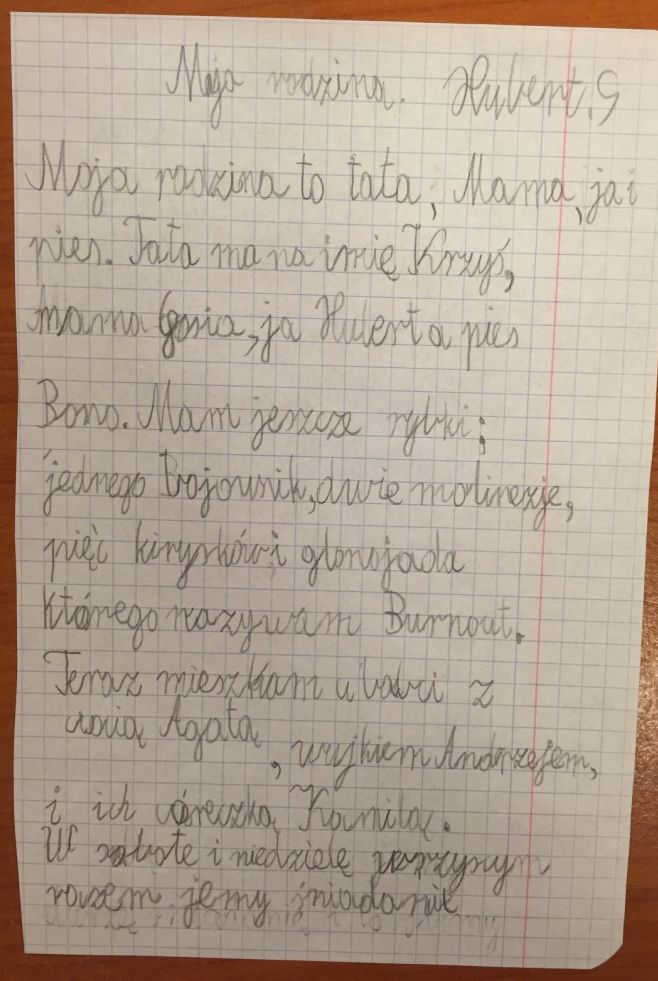 Moja rodzina. Hubert.G
Moja rodzina to tata, Mama, ja i
pies. Tata ma na imię Krzyś,
mama Gosia, ja Huert a pies
Bono. Mam jeszcze rybki;
jednego Bojownik, dwie molinezje,
pięć kirysków i glonojada
którego nazywam Burnout.
Teraz mieszkam u babci z
Agatą, wujkiem Andrzejem,
i ich córeczką Kamilą.
W sobote i niedzielę
razem jemy śniadanie